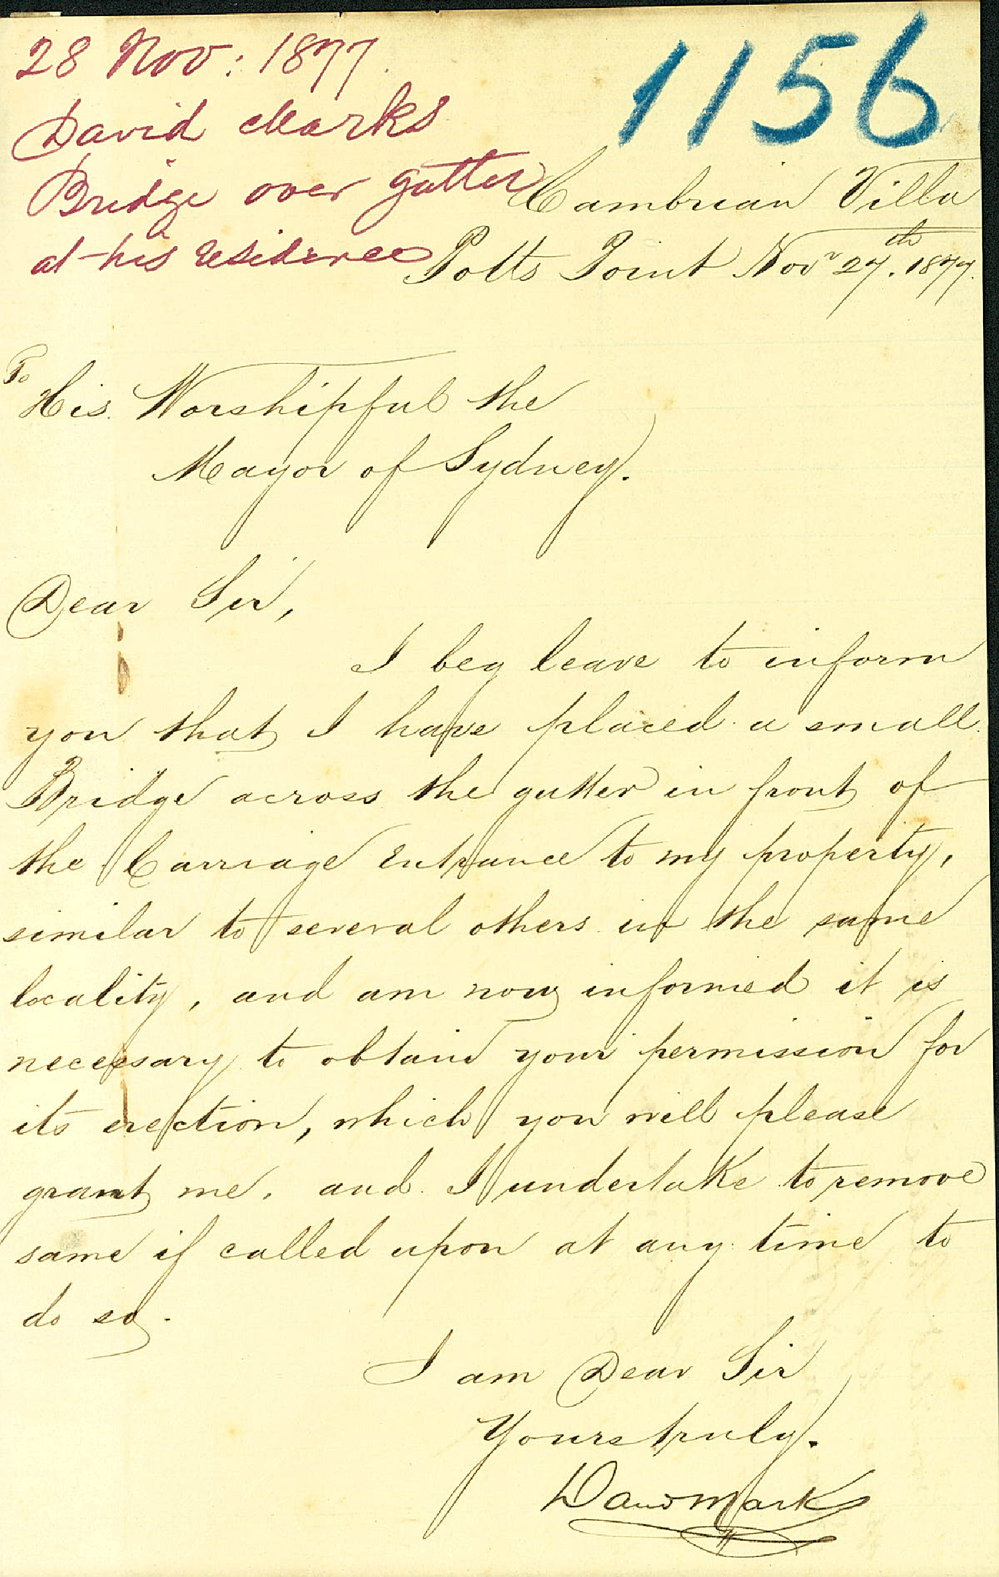 28 Nov: 1877.
1156
David Marks
Bridge over gutter
at his residence
Cambrian Villa
Potts Point Novr 27th. 1877.
To
His Worshipful the
Mayor of Sydney.
Dear Sir,
I beg leave to inform
you that I have placed a small
Bridge across the gutter in front of
the Carriage Entrance to my property,
similar to several others in the same
locality, and am now informed it is
necessary to obtain your permission for
its erection, which you will please
grant me, and I undertake to remove
same if called upon at any time to
do so.
I am Dear Sir
Yours truly.
David Marks